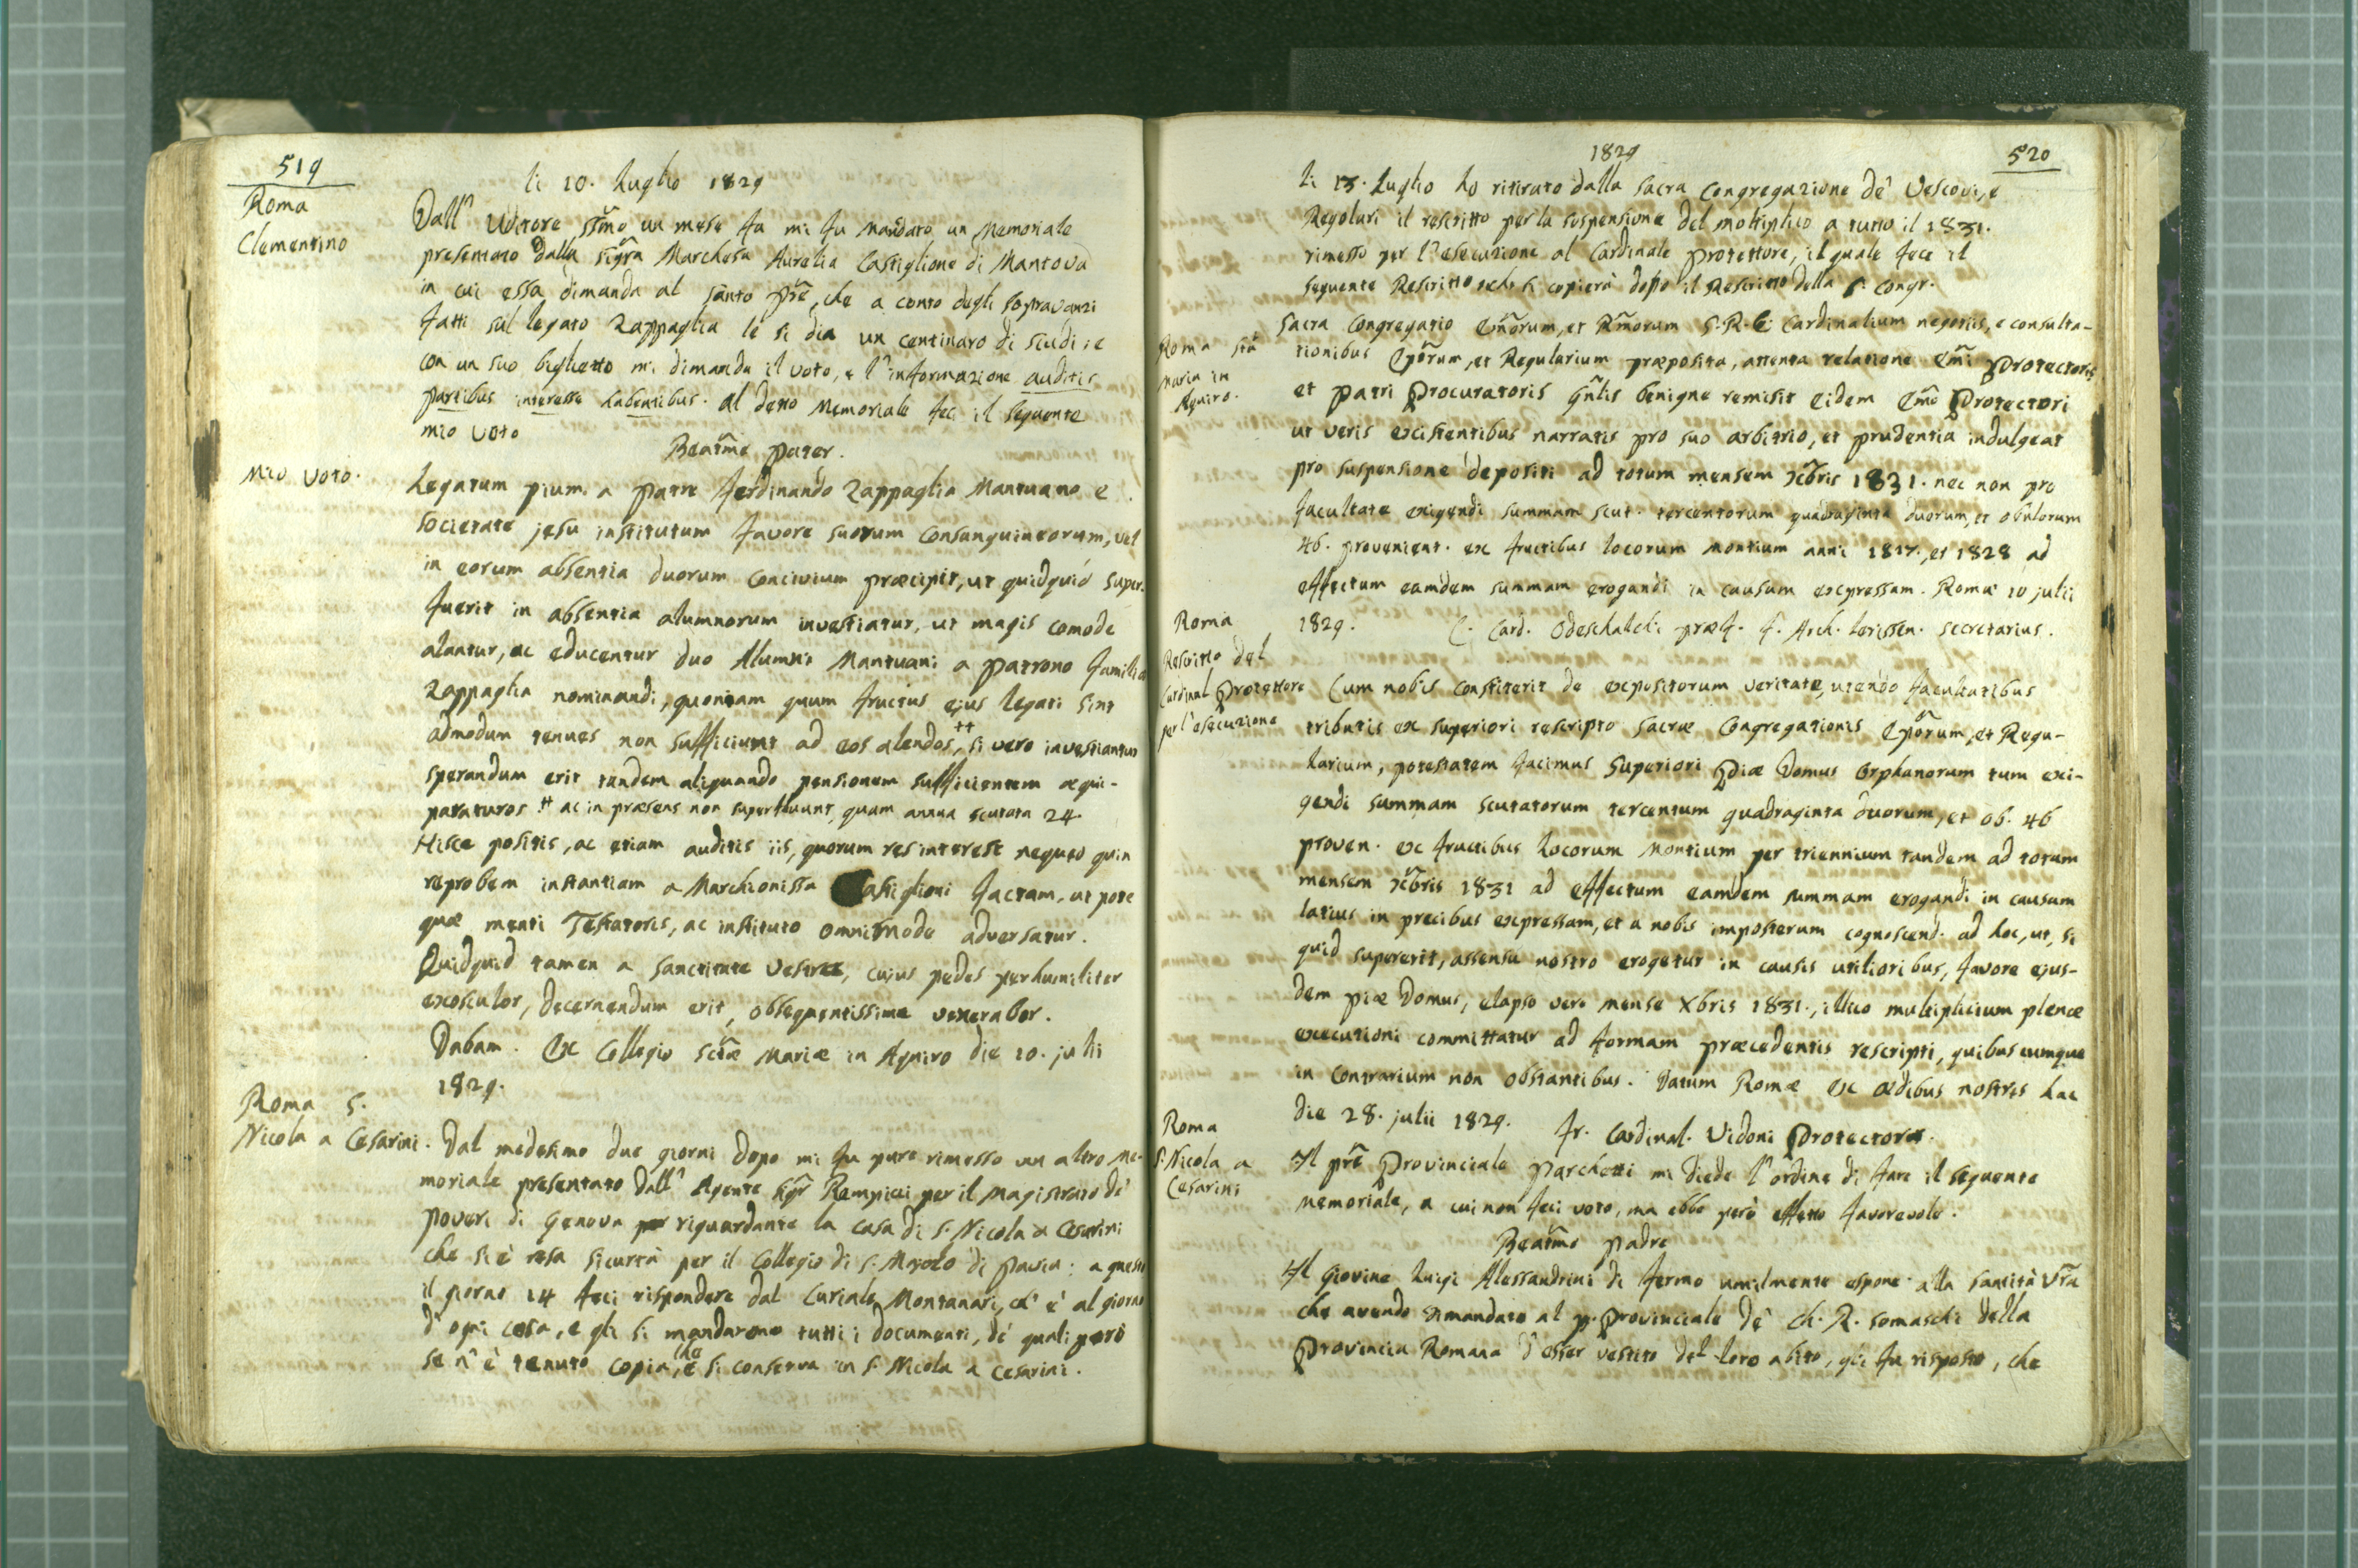 519
Roma
Clementino
li 10. Luglio 1829
Dall' Uditore SSmo un mese fa mi fu mandato un Memoriale
presentato dalla Sigra Marchesa Aurelia Castiglione di Mantova
in cui essa dimanda al Santo Pre, che a conto degli sopravanzi
fatti sul legato Zappaglia le si dia un centinaro di scudi; e
con un suo biglietto mi dimanda il voto, e l'informazione auditis
partibus interesse habentibus. Al detto Memoriale feci il seguente
mio voto
Beatme Pater.
Mio voto.
Legatum pium a Patre Ferdinando Zappaglia Mantuano e
Societate Jesu institutum favore suorum Consanguineorum, vel
in eorum absentia duorum Concivium præcipit, ut quidquid super-
fuerit in absentia alumnorum investiatur, ut magis comode
alantur, ac educentur duo Alumni Mantuani a Patrono familia
Zappaglia nominandi, quoniam quum fructus ejus legati sint
admodum tenues non sufficiunt ad eos alendos, ++ si vero investiantur
sperandum erit tandem aliquando pensionem sufficientem æqui-
paraturos ++ ac in præsens non superfluunt, quam annua scutata 24
Hisce positis, ac etiam auditis iis, quorum res interest nequeo quin
reprobem instantiam a Marchionissa Castiglioni factam, ut pote
quæ menti Testatoris, ac instituto omnimode adversatur.
Quidquid tamen a Sanctitate Vestra, cujus pedes perhumiliter
exosculor, decernendum erit, obsequentissime venerabor.
Dabam. Ex Collegio Sctæ Mariæ in Aquiro die 10. julii
1829.
Roma S.
Nicola a Cesarini.
Dal medesimo due giorni dopo mi fu pure rimesso un altro me-
moriale presentato dall' Agente Sigr Rempicci per il Magistrato de'
poveri di Genova per riguardante la casa di S. Nicola a Cesarini
che si è resa sicurtà per il Collegio di S. Majolo di Pavia: a questo
il giorno 14 feci rispondere dal Curiale Montanari, ch' è al giorno
d' ogni cosa, e gli si mandarono tutti i documenti, de' quali però
se n' è tenuto copia, che si conserva in S. Nicola a Cesarini.
1829
520
li 13. Luglio ho ritirato dalla Sacra Congregazione de' Vescovi, e
Regolari il rescritto per la sospensione del moltiplico a tutto il 1831.
rimesso per l'esecuzione al Cardinale Protettore, il quale fece il
seguente Rescritto che si copierà dopo il Rescritto della S. Congr.
Roma Sta
Maria in
Aquiro.
Sacra Congregatio Emorum, et Rmorum S. R. E. Cardinalium negotiis, e consulta-
tionibus Eporum, et Regularium præposita, attenta relatione Emi Protectoris
et Patri Procuratoris Gnlis benigne remisit eidem Emo Protectori
ut veris existentibus narratis pro suo arbitrio, et prudentia indulgeat
pro suspensione depositi ad totum mensem Xbris 1831. nec non pro
facultate exigendi summam scut. tercentorum quadraginta duorum, et obulorum
46. provenient. ex fructibus locorum Montium anni 1827, et 1828 ad
effectum eamdem summam erogandi in causam expressam. Romæ 10 julii
1829. C. Card. Odeschalchi præf. F. Arch. Lerissen. Secretarius.
Roma
Rescritto del
Cardinal Protettore
per l'esecuzione
Cum nobis constiterit de expositorum veritate, utendo facultatibus
tributis ex superiori rescripto Sacræ Congregationis Eporum, et Regu-
larium, potestatem facimus Superiori Piæ Domus Orphanorum tum exi-
gendi summam scutatorum tercentum quadraginta duorum, et ob. 46
proven. ex fructibus Locorum Montium per triennium tandem ad totum
mensem Xbris 1831 ad effectum eamdem summam erogandi in causam
latius in precibus expressam, et a nobis imposterum cognoscend. ad hoc, ut, si
quid supererit, assensu nostro erogetur in causis utilioribus, favore ejus-
dem piæ Domus, elapso vero mense Xbris 1831., illico multiplicium plenæ
executioni committatur ad formam præcedentis rescripti, quibuscumque
in contrarium non obstantibus. Datum Romæ ex ædibus nostris hac
die 28. julii 1829. Fr. Cardinal. Vidoni Protector.
Roma
S. Nicola a
Cesarini
Il Pre Provinciale Parchetti mi diede l'ordine di fare il seguente
memoriale, a cui non feci voto, ma ebbe però effetto favorevole.
Beatmo Padre
Il Giovine Luigi Alessandrini di Fermo umilmente espone alla Santità Vra
che avendo dimandato al P. Provinciale de' Ch. R. Somaschi della
Provincia Romana d' esser vestito del loro abito, gli fu risposto, che